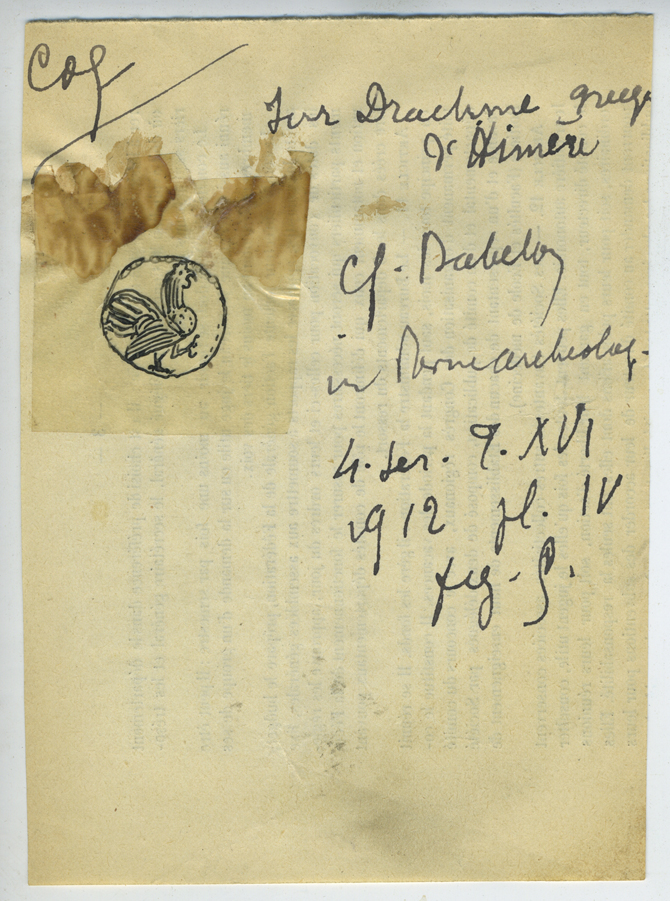 Coq
Sur Drachme grecq
d'Himere
Cf. Babelon
in Revue archeolog.
4. ser. T. XVI
1912 pl. IV
fig.